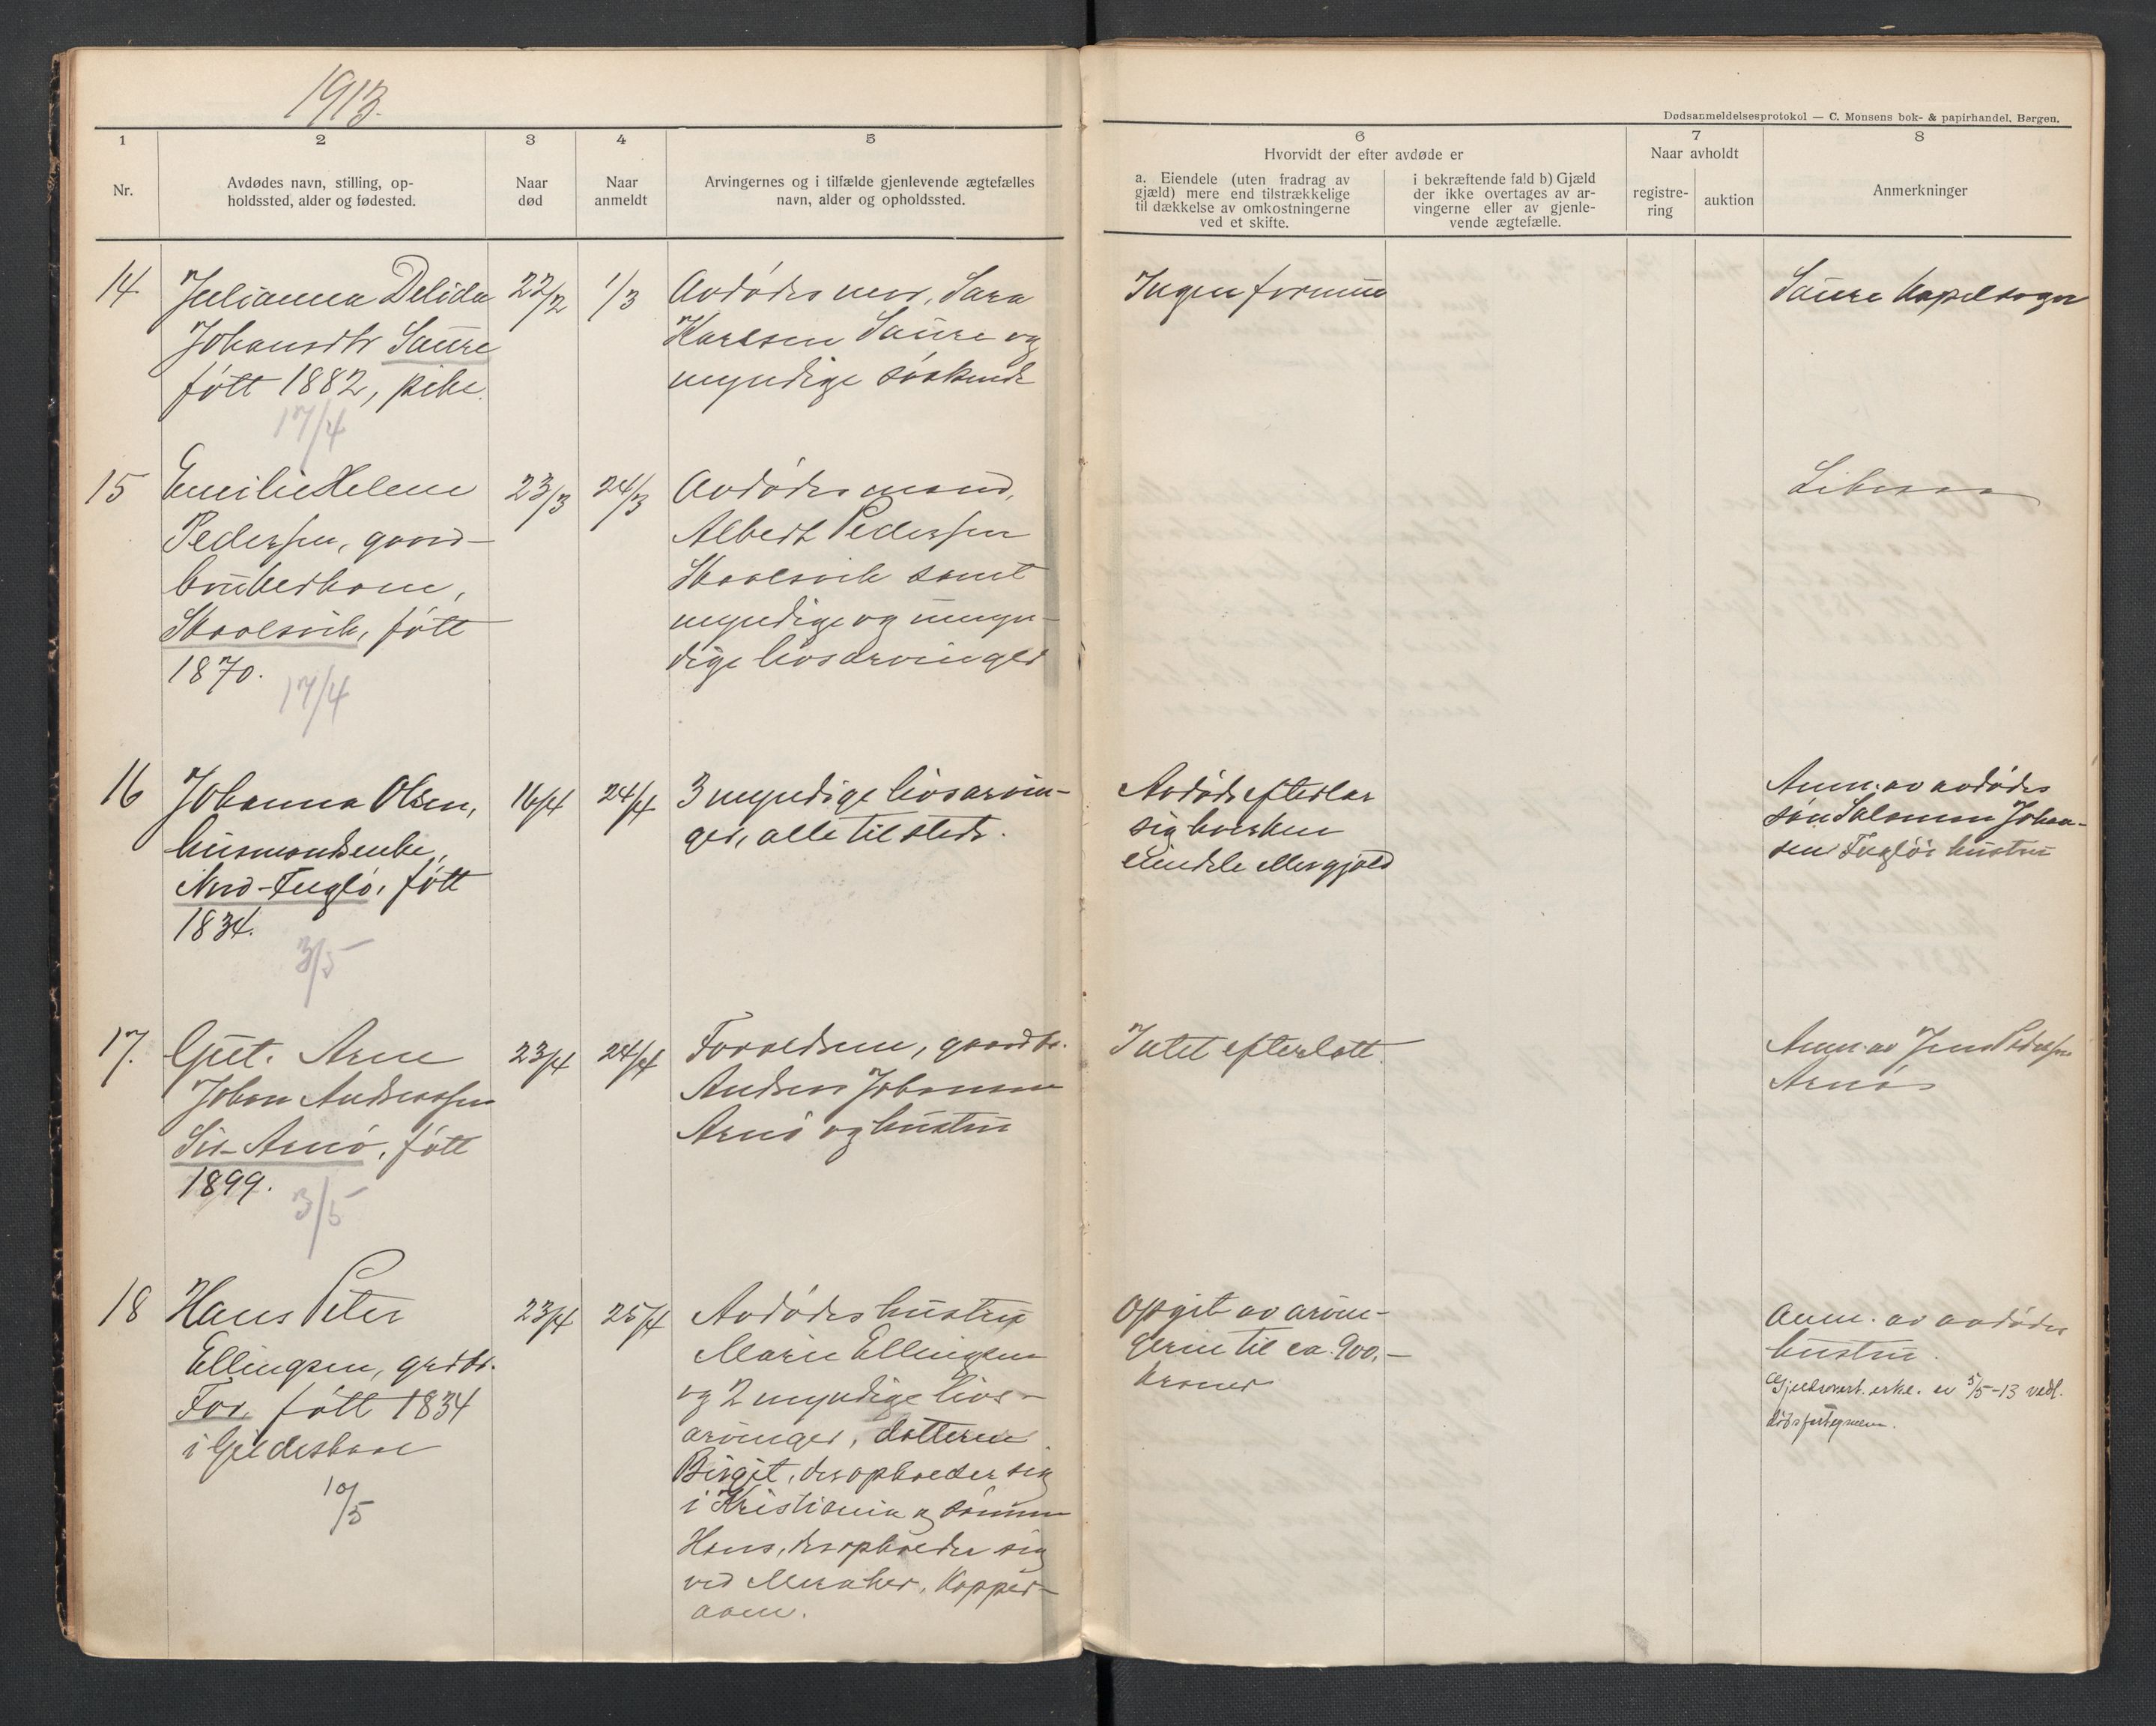 1913.
Dødsanmeldelsesprotokol — C. Monsens bok- & papirhandel. Bergen.
1
2
3
4
5
6
7
8
Nr.
Avdødes navn, stilling, op-
holdssted, alder og fødested.
Naar
død
Naar
anmeldt
Arvingernes og i tilfælde gjenlevende ægtefælles
navn, alder og opholdssted.
Hvorvidt der efter avdøde er
a. Eiendele (uten fradrag av
gjæld) mere end tilstrækkelige
til dækkelse av omkostningerne
ved et skifte.
i bekræftende fald b) Gjæld
der ikke overtages av ar-
vingerne eller av gjenle-
vende ægtefælle.
Naar avholdt
registre-
ring
auktion
Anmerkninger
14
Julianna Delida
Johansdtr Saure
født 1882, pike.
17/4
22/2
1/3
Avdødes mor, Sara
Karlsen Saure og
myndige søskende
Ingen formue
Saure kapelsogn
15
Emilie Helene
Pedersen, gaard-
brukerkone,
Skaalsvik, født
1870.
17/4
23/3
24/3
Avdødes mand,
Albert Pedersen
Skaalsvik samt
myndige og umyn-
dige livsarvinger
16
Johanna Olsen,
husmandsenke,
Nord-Fuglø, født
1834.
3/5
16/4
24/4
3 myndige livsarvin-
ger, alle tilstede.
Avdøde efterlar
sig hverken
eiendele eller gjæld
Anm. av avdødes
søn Salomon Johan-
sen Fugløs hustru
17.
Gut. Arne
Johan Andreassen
Sør-Arnø, født
1899.
3/5
23/4
24/4
Forældrene, gaardbr.
Andreas Johansen
Arnø og hustru
Intet efterlatt.
Anm. av Jens Pedersen
Arnø
18
Hans Peter
Ellingsen, grdbr.
For, født 1834
i Gildeskaal
10/5
23/4
25/4
Avdødes hustru
Marie Ellingsen
og 2 myndige livs-
arvinger, datteren
Birgit, der opholder sig
i Kristiania og sønnen
Hans, der opholder sig
ved Meraker, Kopper-
aaen.
Opgit av arvin-
gerne til ca. 900,-
kroner
Anm. av avdødes
hustru.
Gjeldsovert. erkl. av 5/5-13 vedl.